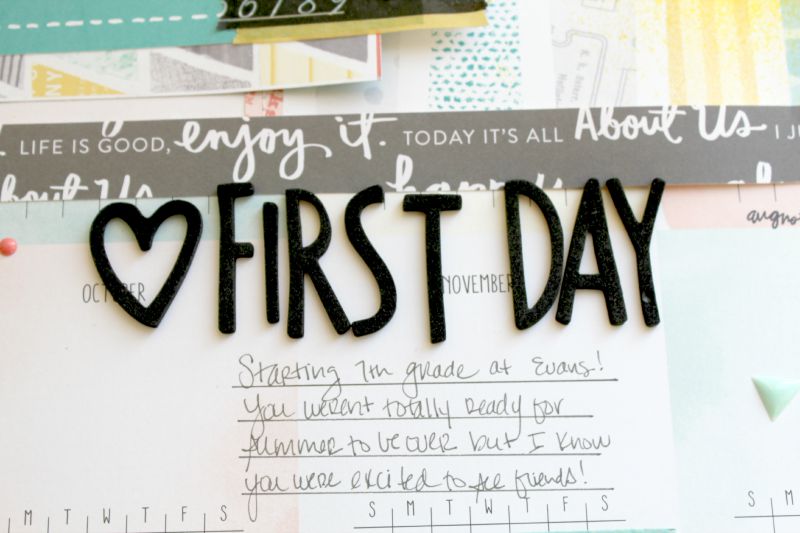 LIFE IS GOOD, enjoy it. TODAY IT'S ALL About Us I
bout Us
FIRST DAY
OCTOBER NOVEMBER
Starting 7th grade at Evans!
You weren't totally ready for
summer to be over but I know
you were excited to see friends!
M T W T F S
S M T W T F S
S M